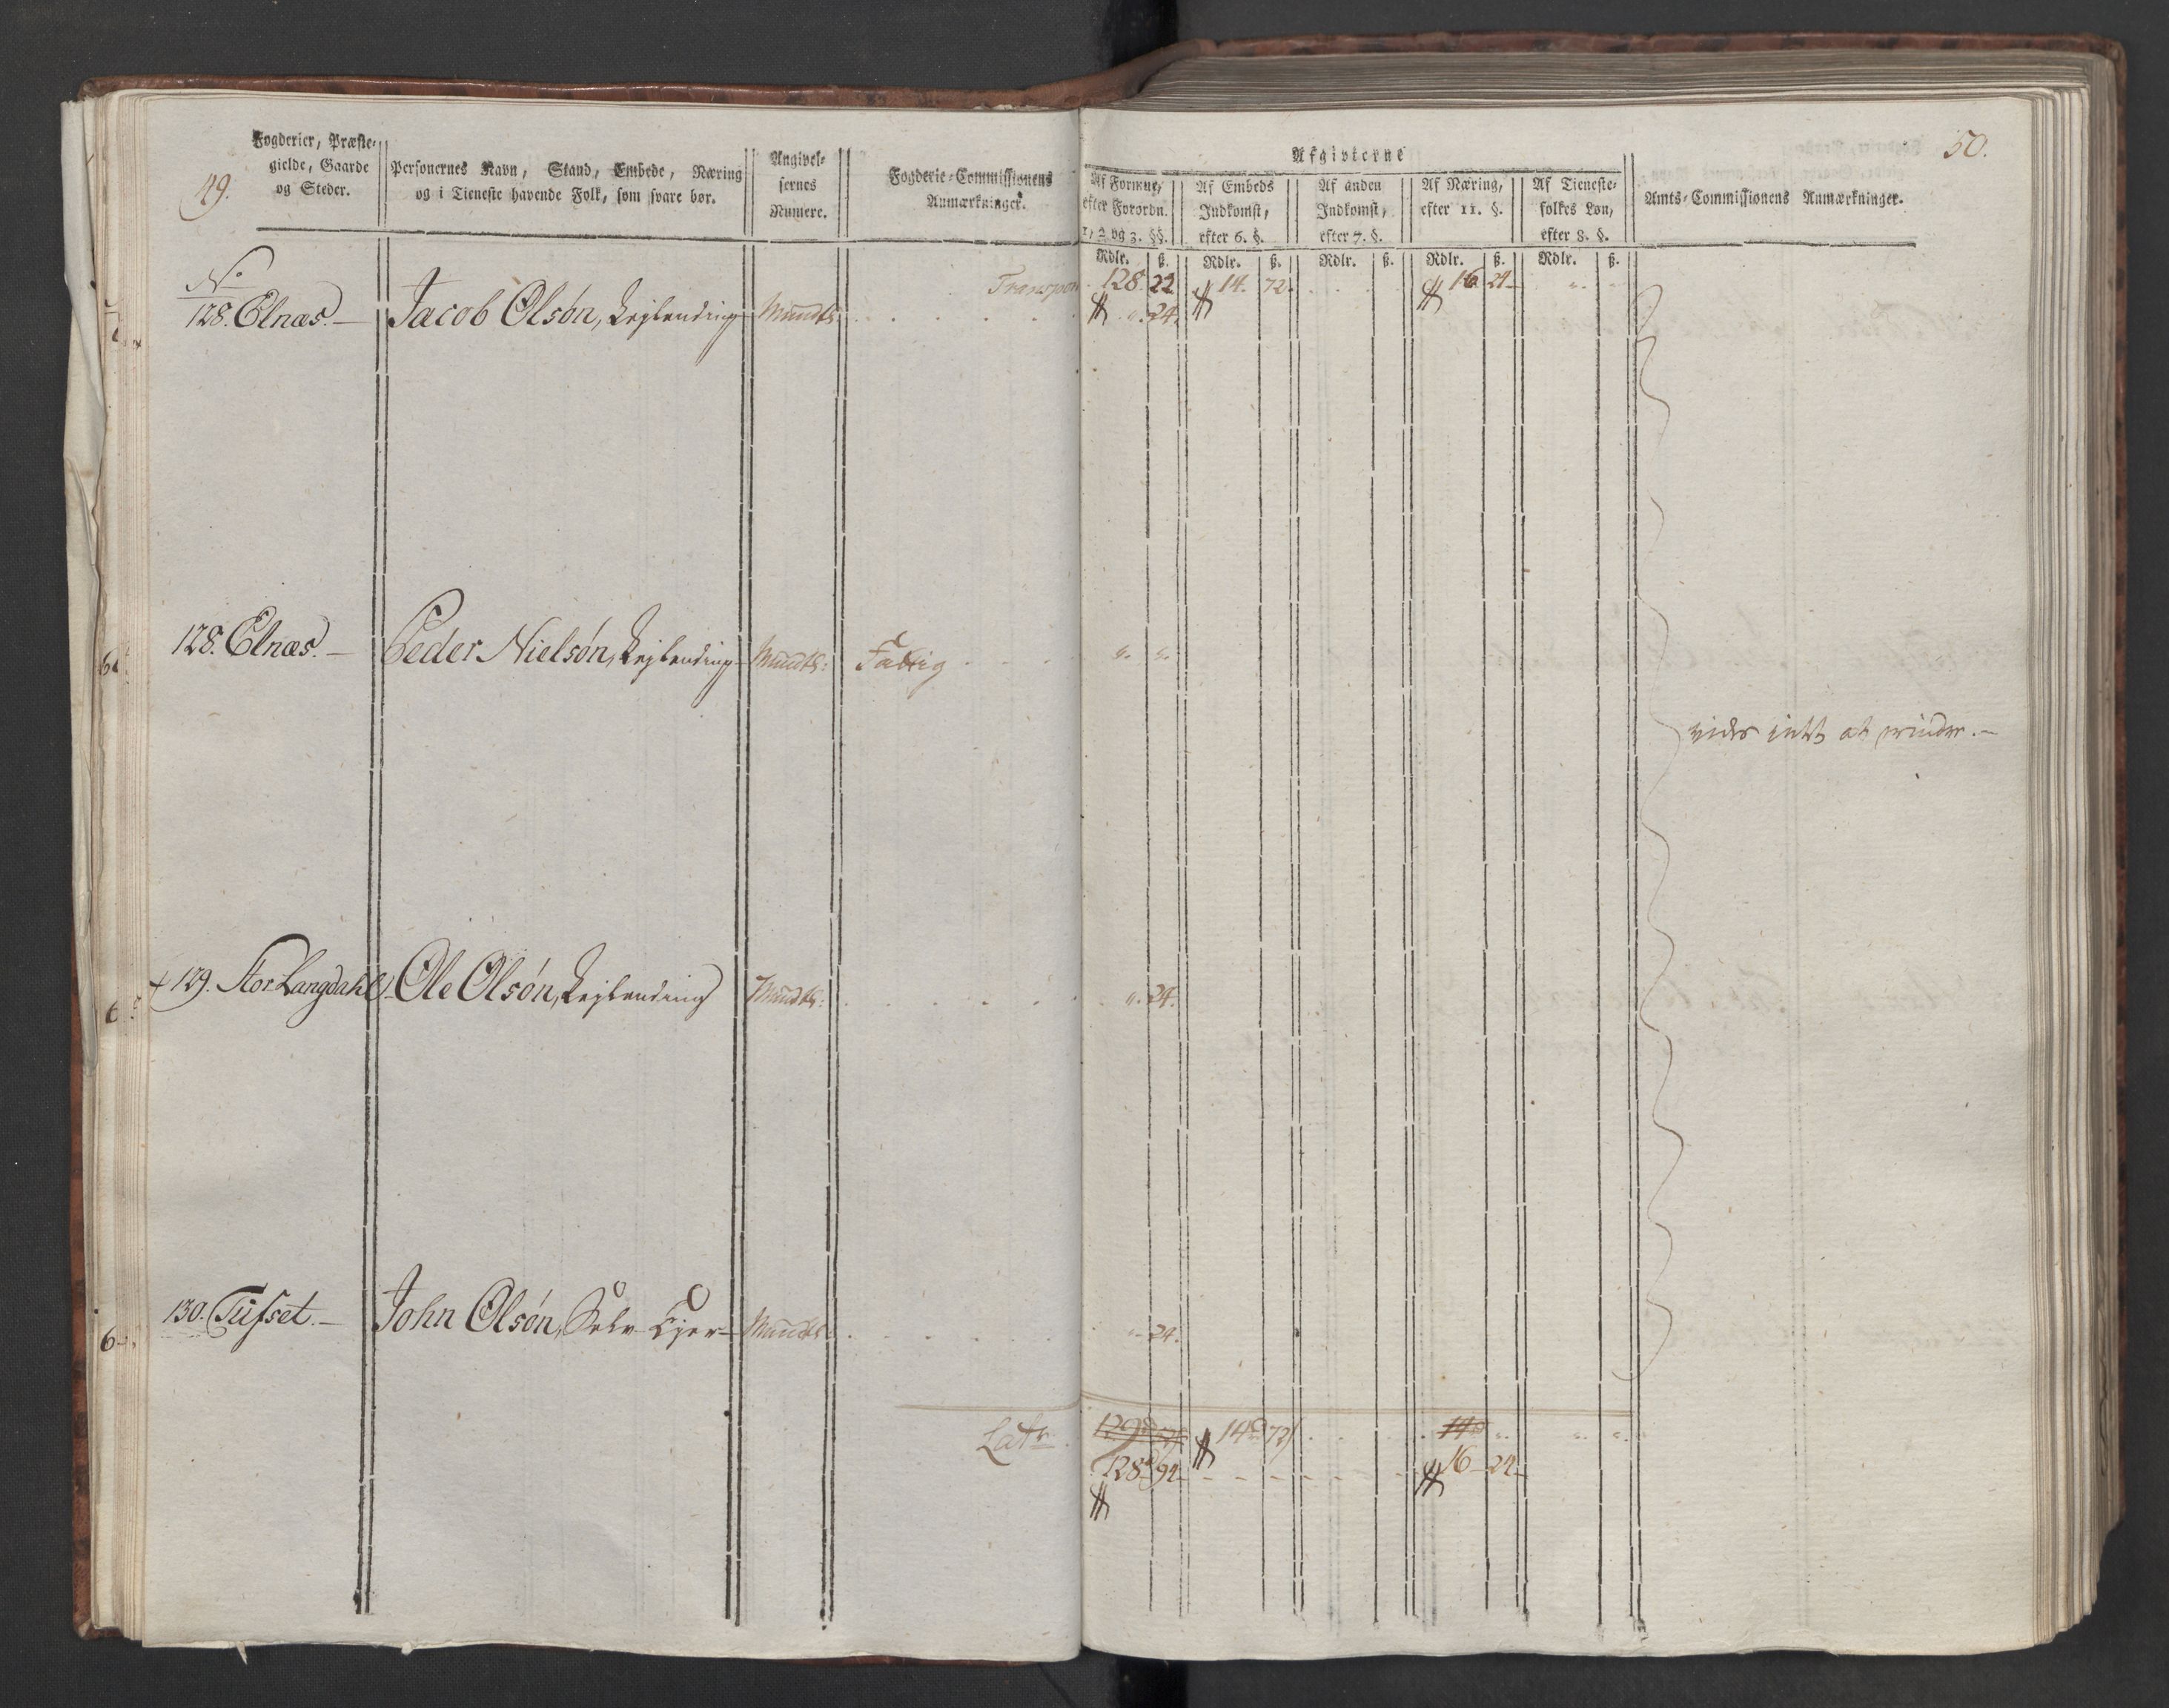 49.
Fogderier, Præste-
gielde, Gaarde
og Steder.
Personernes Navn, Stand, Embede, Næring
og i Tieneste havende Folk, som svare bør.
Angivel-
sernes
Numere.
Fogderie-Commissionens
Anmærkninger.
Afgivterne
50.
Af Formue,
efter Forordn.
1, 2 og 3. §§.
Af Embeds
Indkomst,
efter 6. §.
Af anden
Indkomst,
efter 7. §.
Af Næring,
efter 11. §.
Af Tieneste-
folkes Løn,
efter 8. §.
Amts-Commissionens Anmærkninger.
Rdlr. ß. Rdlr. ß. Rdlr. ß. Rdlr. ß. Rdlr. ß.
No
Transport 128 22 14. 72. 16 24
128. Elnæs. — Jacob Olsøn, Lejlending Mundtl: " 24.
128. Elnæs. — Peder Nielsøn, Lejlending Mundtl: Fattig " "
vides intet at erindre. —
129. Stor Langdahl Ole Olsøn, Lejlending Mundtl: " 24.
130. Tüfset. — John Olsøn, Selv Ejer Mundtl: " 24.
Latr. 129 14 72 " "
128 94 16 24